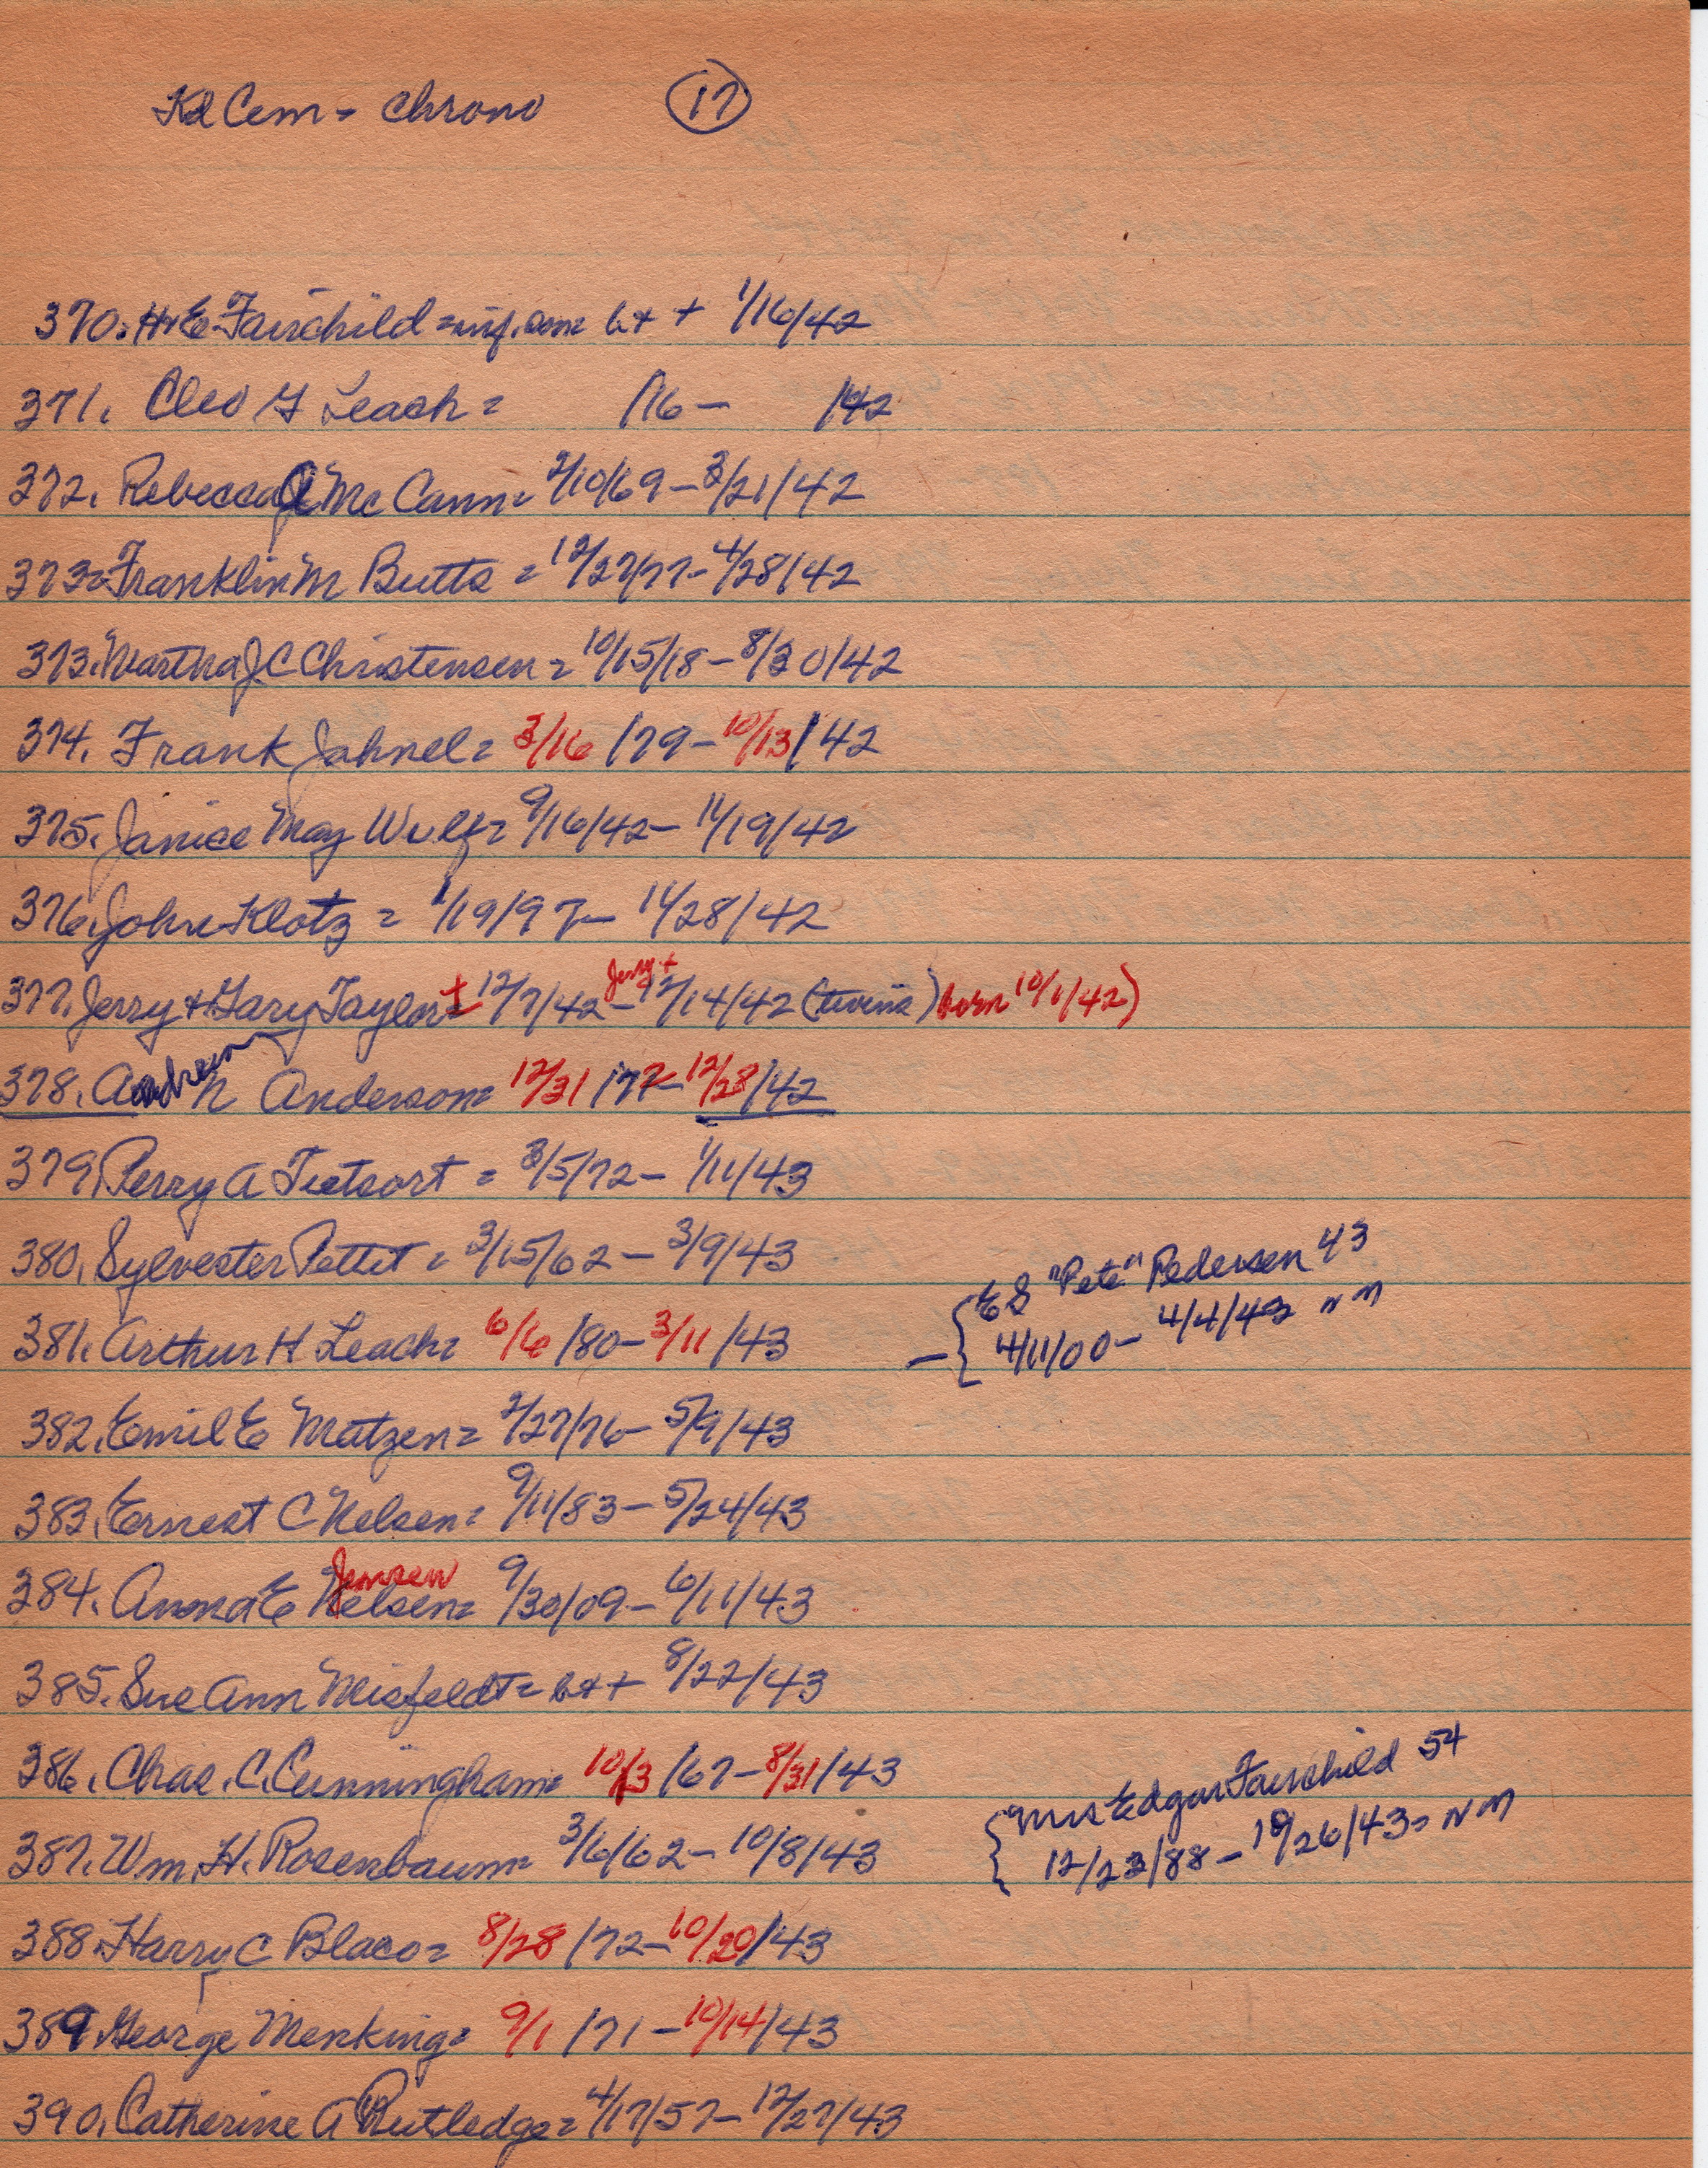 Kd Cem = Chrono 17
370. H+E Fairchild = inf. son = b++ 1/16/42
371. Cleo G Leach = /16 - /42
372. Rebecca McCann = 2/10/69 - 3/21/42
373 = Franklin M Butts = 12/27/77 - 4/28/42
373. Martha J C Christensen = 10/15/18 - 8/30/42
374. Frank Jahnel = 3/16/79 - 10/13/42
375. Janice May Wulf = 9/16/42 - 11/19/42
376. John Klotz = 1/19/97 - 11/28/42
Jerry +
377. Jerry + Gary Taylor = + 12/7/42 - 12/14/42 (twins) born 10/1/42)
378. Andrew N Anderson = 12/31/77 - 12/28/42
379. Perry A Tietsort = 3/5/72 - 1/11/43
380. Sylvester Pettit = 3/15/62 - 3/9/43
E S "Pete" Pedersen 43
381. Arthur H Leach = 6/6/80 - 3/11/43
4/11/00 - 4/4/43 nm
382. Emil E Matzen = 2/27/76 - 5/9/43
383. Ernest C Nelsen = 9/11/83 - 5/24/43
Jensen
384. Anna E Nelsen = 9/30/09 - 6/11/43
385. Sue Ann Misfeldt = b++ 8/22/43
386. Chas. C. Cunningham = 10/3/67 - 8/31/43
Mrs Edgar Fairchild 54
387. Wm. H. Rosenbaum = 3/6/62 - 10/8/43
12/23/88 - 10/26/43 = nm
388. Harry C Blaco = 8/28/72 - 10/20/43
389. George Menking = 9/1/71 - 10/14/43
390. Catherine A Rutledge = 4/17/57 - 12/27/43